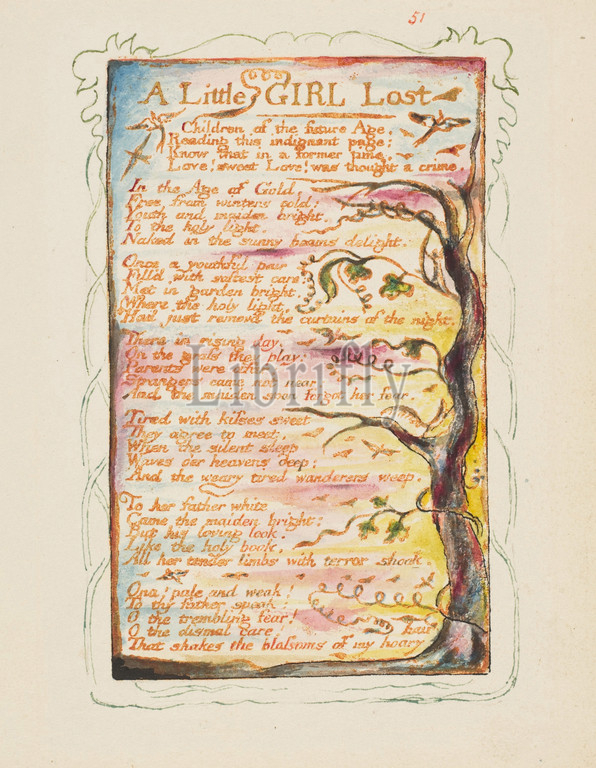 51
A Little GIRL Lost
Children of the future Age,
Reading this indignant page:
Know that in a former time,
Love! sweet Love! was thought a crime.
In the Age of Gold,
Free from winters cold:
Youth and maiden bright,
To the holy light,
Naked in the sunny beams delight.
Once a youthful pair
Fill'd with softest care:
Met in garden bright,
Where the holy light,
Had just remov'd the curtains of the night.
There in rising day,
On the grass they play:
Parents were afar:
Strangers came not near:
And the maiden soon forgot her fear.
Librifly
Tired with kisses sweet
They agree to meet,
When the silent sleep
Waves o'er heavens deep:
And the weary tired wanderers weep.
To her father white
Came the maiden bright:
But his loving look,
Like the holy book,
All her tender limbs with terror shook.
Ona! pale and weak!
To thy father speak:
O the trembling fear!
O the dismal care!
hair
That shakes the blossoms of my hoary